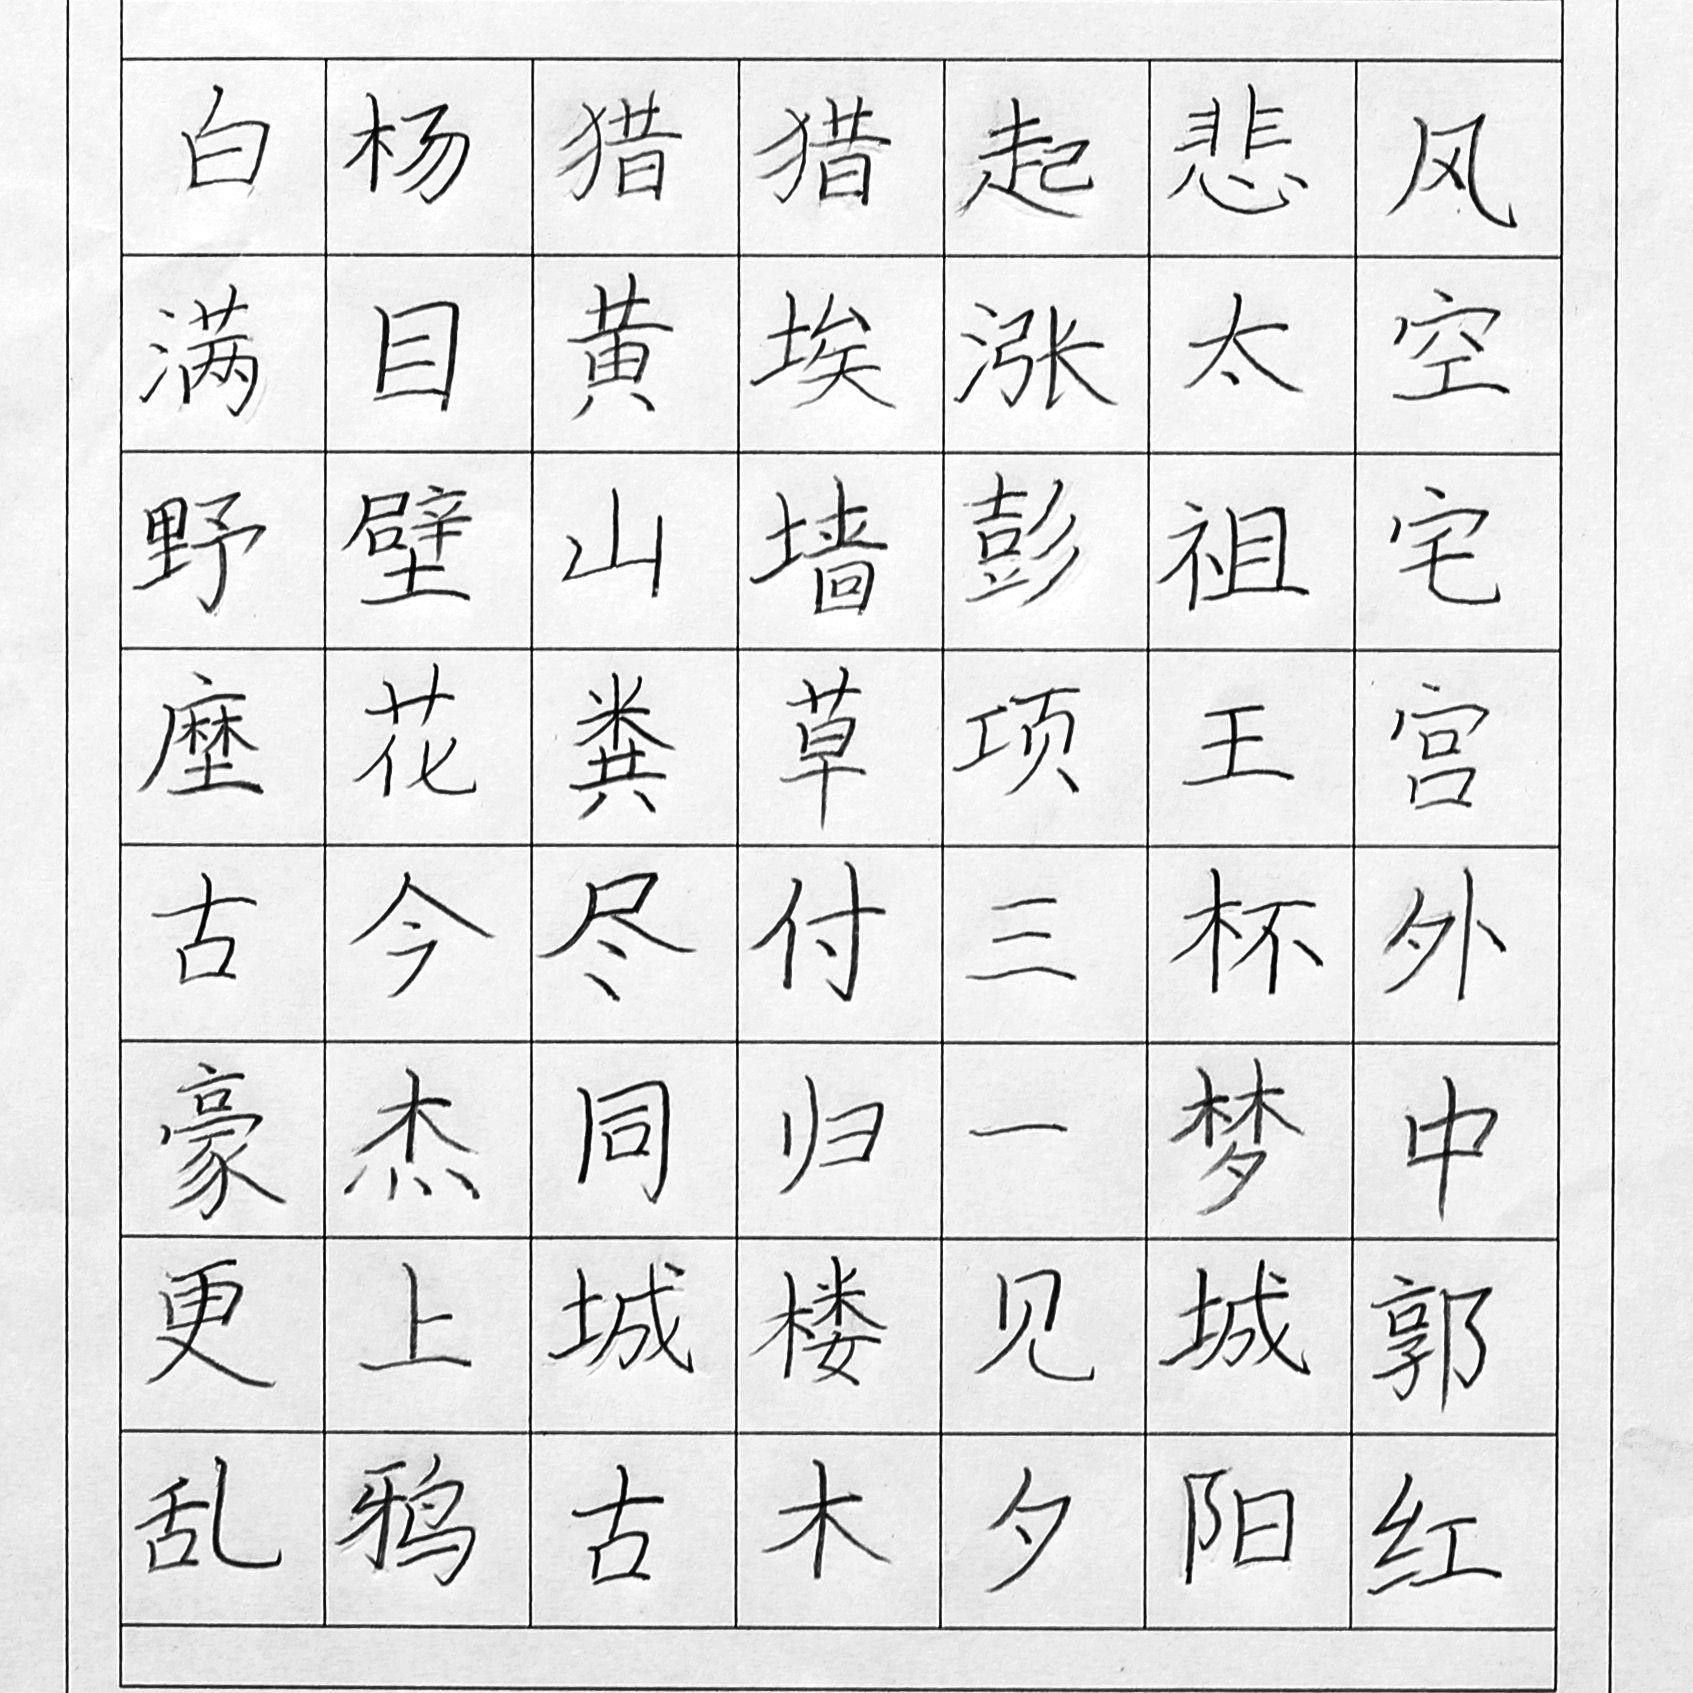 白杨猎猎起悲风
满目黄埃涨太空
野壁山墙彭祖宅
塺花粪草项王宫
古今尽付三杯外
豪杰同归一梦中
更上城楼见城郭
乱鸦古木夕阳红